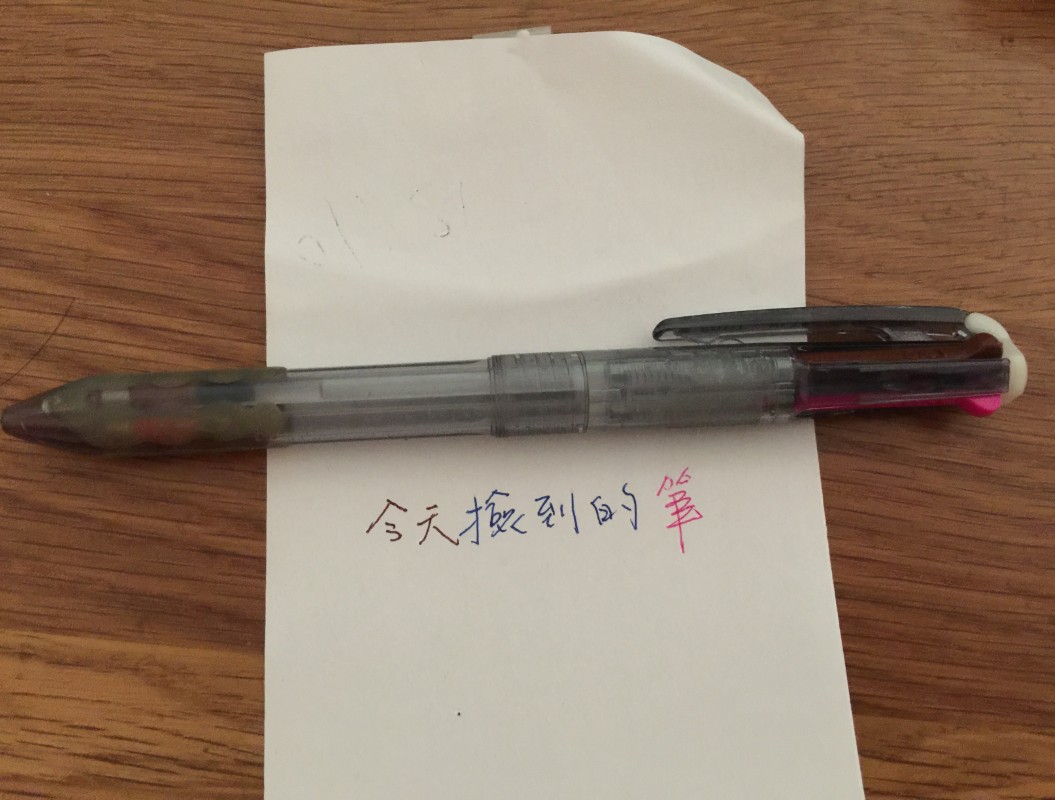 今天撿到的筆